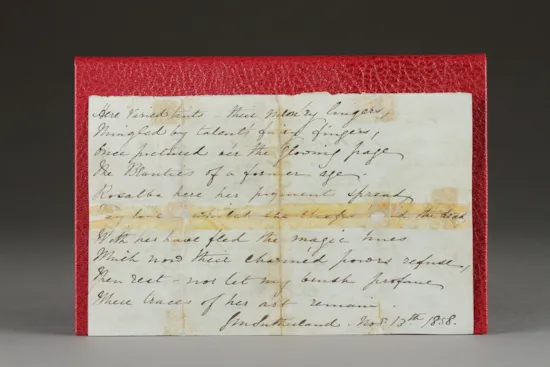 Here varied tints their mem'ry lingers,
Mingled by talents fingers,
Once pictured o'er the glowing page
The Beauties of a former age.
Rosalba here her pigment spread
the dead
With her have fled the magic hues
Which now their charmed powers refuse,
Then rest - nor let my brush profane
Where traces of her art remain.
Sutherland. Nov. 13th 1858.